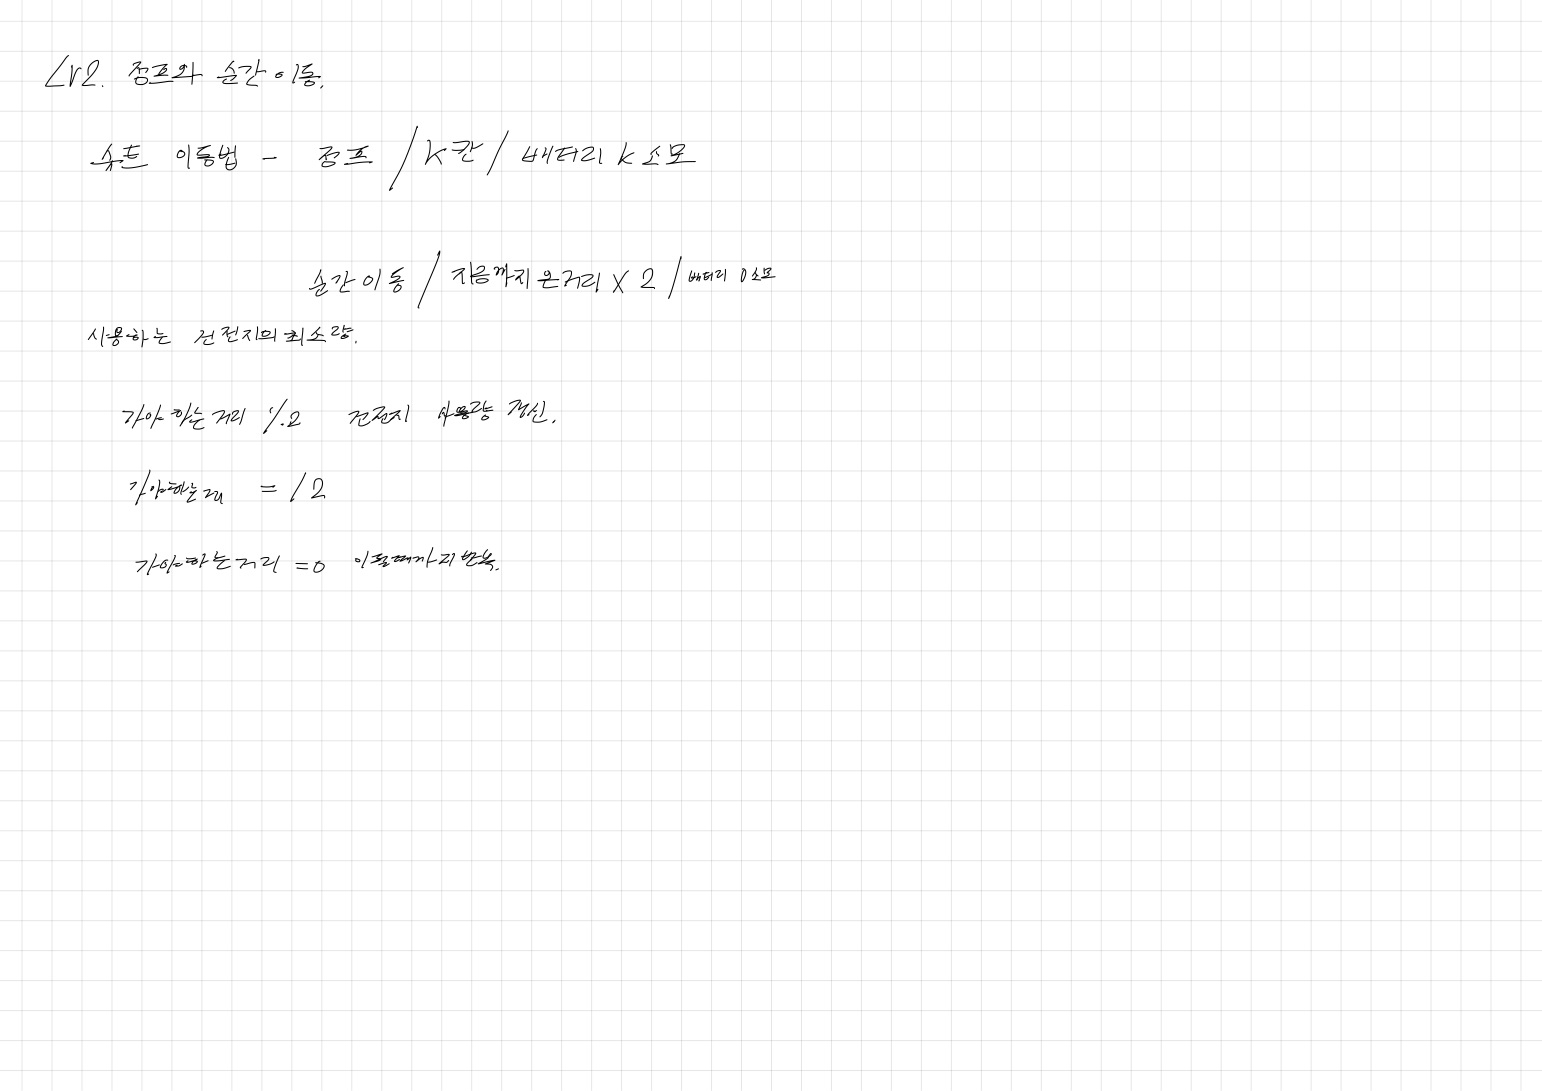 Lv2. 점프와 순간 이동.
슈트 이동법 - 점프 / K칸 / 배터리 k 소모
순간이동 / 지금까지 온거리 X 2 / 배터리 0 소모
사용하는 건전지의 최소량.
가야 하는 거리 % 2 건전지 사용량 갱신.
가야하는거리 = / 2
가야하는거리 = 0 이될때까지 반복.